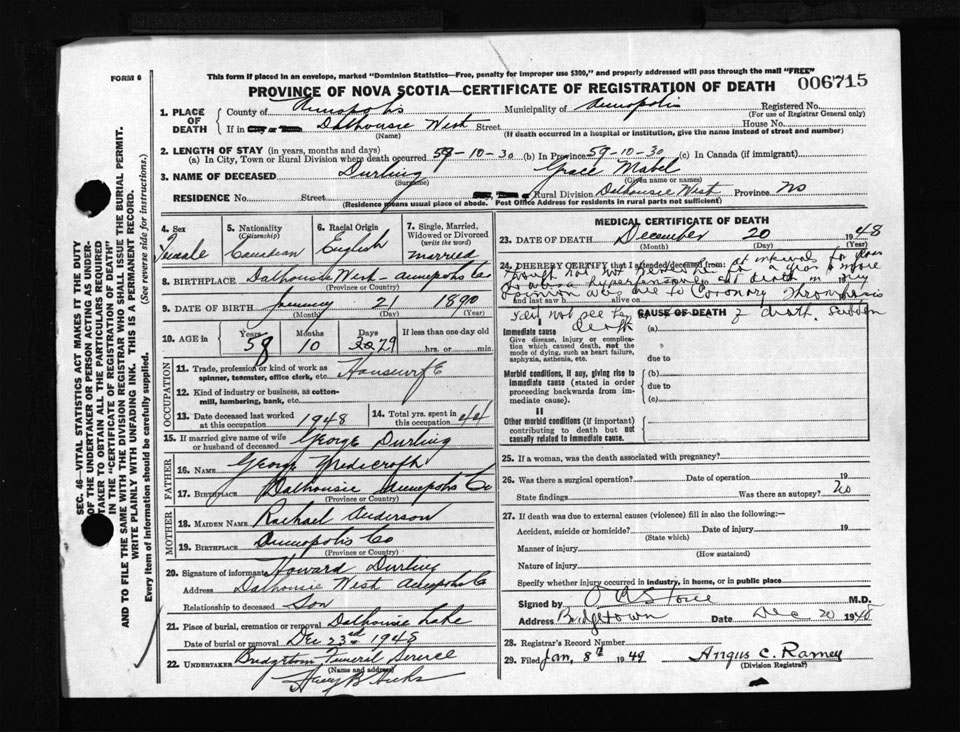 FORM 6
This form if placed in an envelope, marked "Dominion Statistics—Free, penalty for improper use $300," and properly addressed will pass through the mail "FREE"
PROVINCE OF NOVA SCOTIA—CERTIFICATE OF REGISTRATION OF DEATH
006715
SEC. 46—VITAL STATISTICS ACT MAKES IT THE DUTY
OF THE UNDERTAKER OR PERSON ACTING AS UNDER-
TAKER TO OBTAIN ALL THE PARTICULARS REQUIRED
IN THE "CERTIFICATE OF REGISTRATION OF DEATH"
AND TO FILE THE SAME WITH THE DIVISION REGISTRAR WHO SHALL ISSUE THE BURIAL PERMIT.
WRITE PLAINLY WITH UNFADING INK. THIS IS A PERMANENT RECORD.
Every item of information should be carefully supplied. (See reverse side for instructions.)
1. PLACE OF DEATH
County of Annapolis Municipality of Annapolis Registered No.
(For use of Registrar General only)
If in City or Town Dalhousie West Street House No.
(Name) (If death occurred in a hospital or institution, give the name instead of street and number)
2. LENGTH OF STAY (in years, months and days)
(a) In City, Town or Rural Division where death occurred 59-10-30 (b) In Province 59-10-30 (c) In Canada (if immigrant)
3. NAME OF DECEASED Durling Grace Mabel
(Surname) (Given name or names)
RESIDENCE No. Street Rural Division Dalhousie West Province NS
(Residence means usual place of abode. Post Office Address for residents in rural parts not sufficient)
4. Sex
Female
5. Nationality
(Citizenship)
Canadian
6. Racial Origin
English
7. Single, Married,
Widowed or Divorced
(write the word)
married
8. BIRTHPLACE Dalhousie West - Annapolis Co
(Province or Country)
9. DATE OF BIRTH January 21 1890
(Month) (Day) (Year)
10. AGE in
Years Months Days If less than one day old
58 10 29 hrs. or min.
OCCUPATION
11. Trade, profession or kind of work as
spinner, teamster, office clerk, etc. Housewife
12. Kind of industry or business, as cotton-
mill, lumbering, bank, etc.
13. Date deceased last worked
at this occupation 1948
14. Total yrs. spent in
this occupation 44
15. If married give name of wife
or husband of deceased George Durling
FATHER
16. NAME George Medicroft
17. BIRTHPLACE Dalhousie Annapolis Co
(Province or Country)
MOTHER
18. MAIDEN NAME Rachael Anderson
19. BIRTHPLACE Annapolis Co
(Province or Country)
20. Signature of informant Howard Durling
Address Dalhousie West Annapolis Co
Relationship to deceased Son
21. Place of burial, cremation or removal Dalhousie Lake
Date of burial or removal Dec 23rd 1948
22. UNDERTAKER Bridgetown Funeral Service
(Name and address)
Harry B Hicks
MEDICAL CERTIFICATE OF DEATH
23. DATE OF DEATH December 20 1948
(Month) (Day) (Year)
24. I HEREBY CERTIFY that I attended deceased from: at intervals for years
though not seen her for a year or more
death in my
opinion was due to Coronary Thrombosis
and last saw h alive on
did not see her
death
CAUSE OF DEATH
death sudden
I
Immediate cause
Give disease, injury or complica-
tion which caused death, not the
mode of dying, such as heart failure,
asphyxia, asthenia, etc.
(a)
due to
Morbid conditions, if any, giving rise to
immediate cause (stated in order
proceeding backwards from im-
mediate cause).
(b)
due to
(c)
II
Other morbid conditions (if important)
contributing to death but not
causally related to immediate cause.
25. If a woman, was the death associated with pregnancy?
26. Was there a surgical operation? Date of operation 19
State findings Was there an autopsy? No
27. If death was due to external causes (violence) fill in also the following:—
Accident, suicide or homicide? Date of injury 19
(State which)
Manner of injury
(How sustained)
Nature of injury
Specify whether injury occurred in industry, in home, or in public place
Signed by M.D.
Address Bridgetown Date Dec 20 1948
28. Registrar's Record Number
29. Filed Jan. 8th 1949 Angus C. Ramey
(Division Registrar)